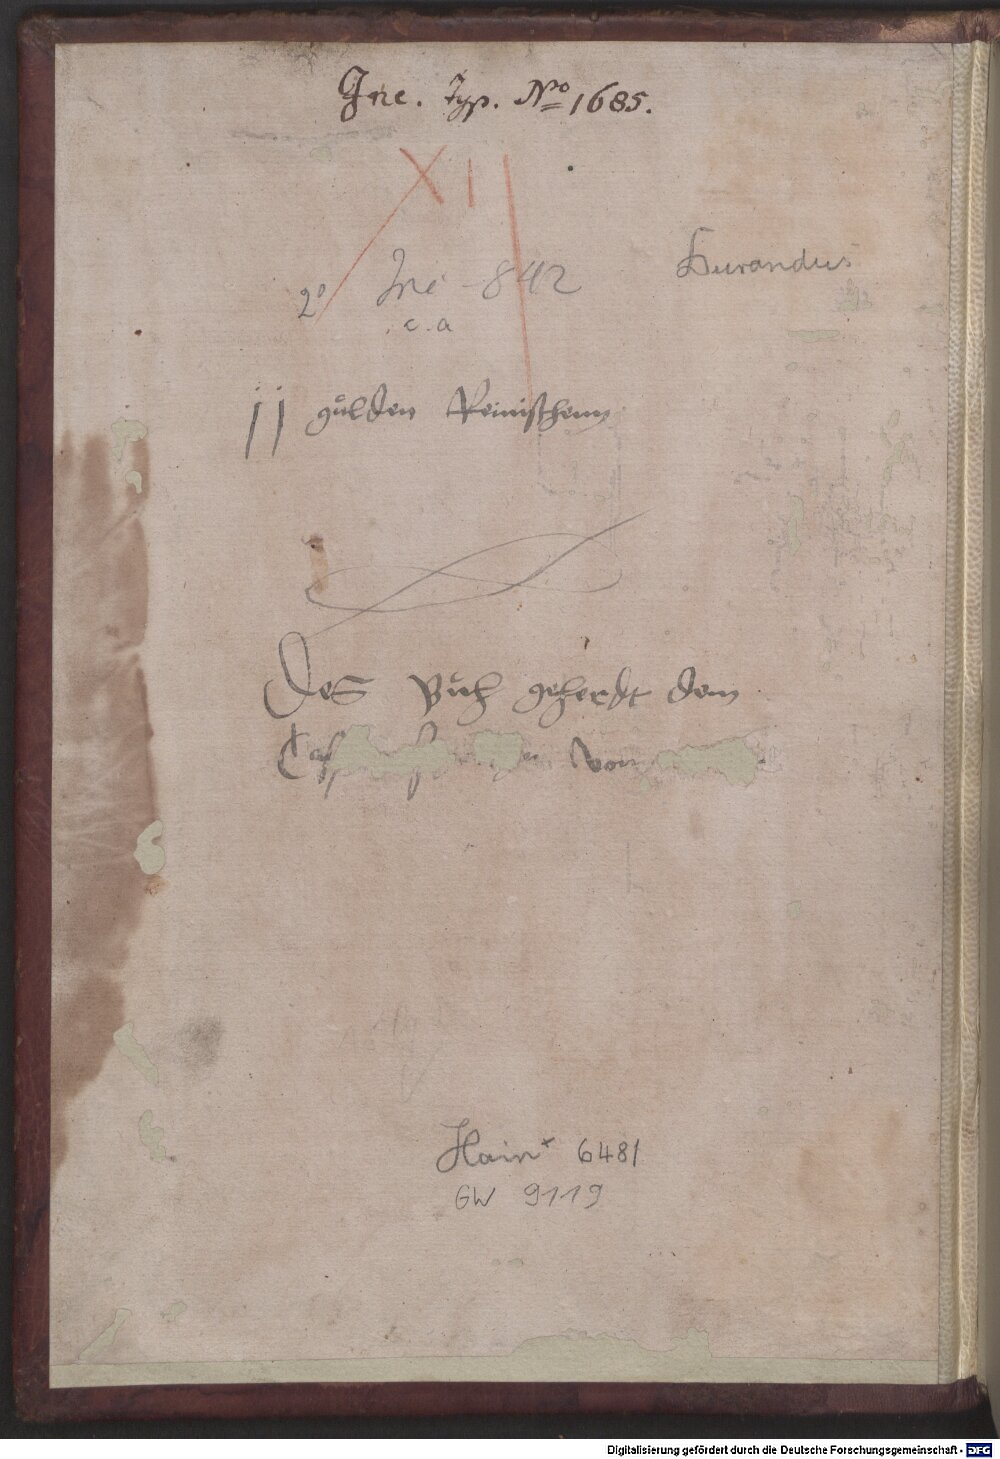 Inc. Typ. No 1685.
XII
Durandus
2° Inc 842
c. a
jj gulden Reinischenn
Des Půch geherdt dem
von
Hain x 6481
GW 9119
Digitalisierung gefördert durch die Deutsche Forschungsgemeinschaft - DFG